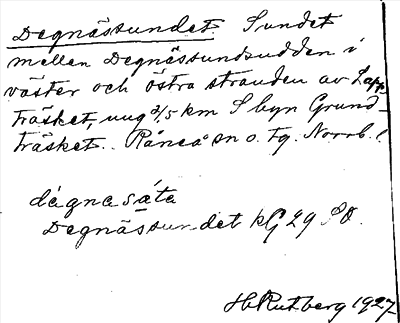 Degnässundet. Sundet
mellan Degnässundsudden i
väster och östra stranden av Lapp-
träsket, ung 3/5 km S byn Grund-
träsket. Råneå sn o. tg. Norrb. l.
dägnasáta
Degnässundet kG 29 SO.
H Rutberg 1927